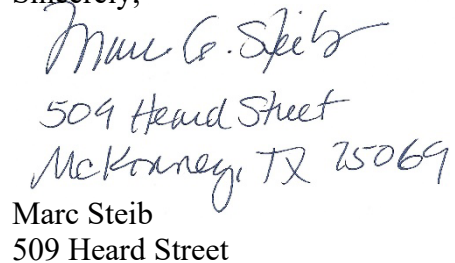 Sincerely,
Marc G. Steib
509 Heard Street
McKinney, TX 75069
Marc Steib
509 Heard Street